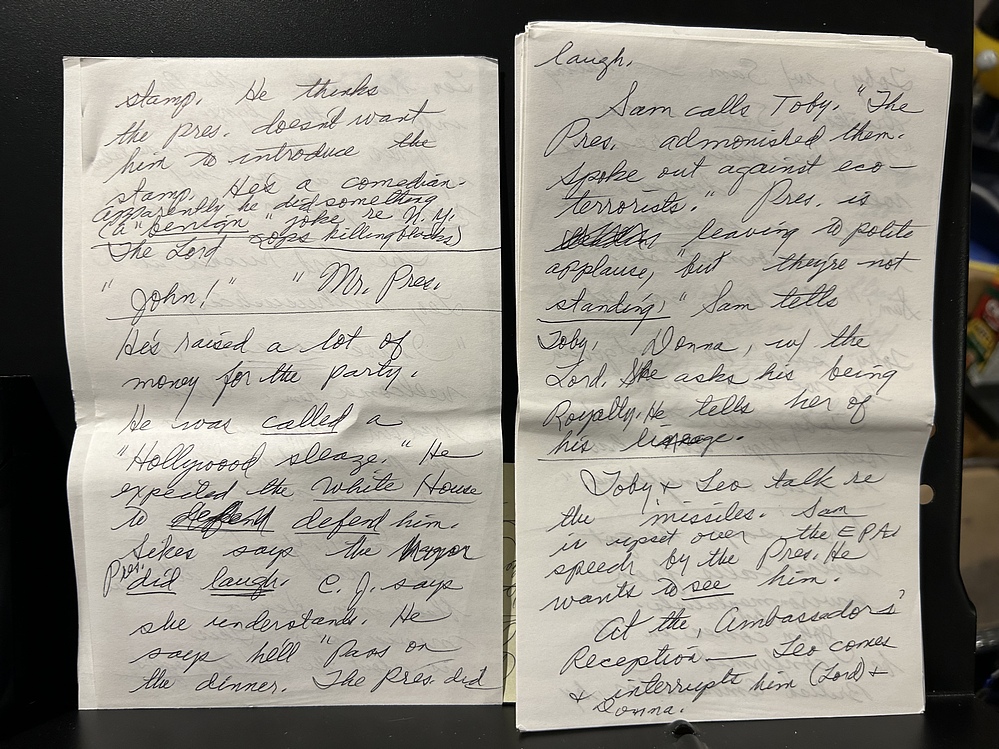 stamp. He thinks
the pres. doesnt want
him to introduce the
stamp. He's a comedian.
apparently he did something
(a "benign" joke re N.Y.
cops killing blacks)
The Lord
"John!" "Mr. Pres.
He's raised a lot of
money for the party.
He was called a
"Hollywood sleaze." He
expected the White House
to defend him.
Sikes says the
Pres. did laugh. C.J. says
she understands. He
says he'll "Pass on
the dinner. The Pres. did
laugh.
Sam calls Toby. "The
Pres. admonished them.
Spoke out against eco-
terrorists." Pres. is
leaving to polite
applause, "but they're not
standing," Sam tells
Toby. Donna, w/ the
Lord. She asks his being
Royalty. He tells her of
his lineage.
Toby + Leo talk re
the missiles. Sam
is upset over the EPA
speech by the Pres. He
wants to see him.
At the Ambassadors'
Reception — Leo comes
+ interrupts him (Lord) +
Donna.